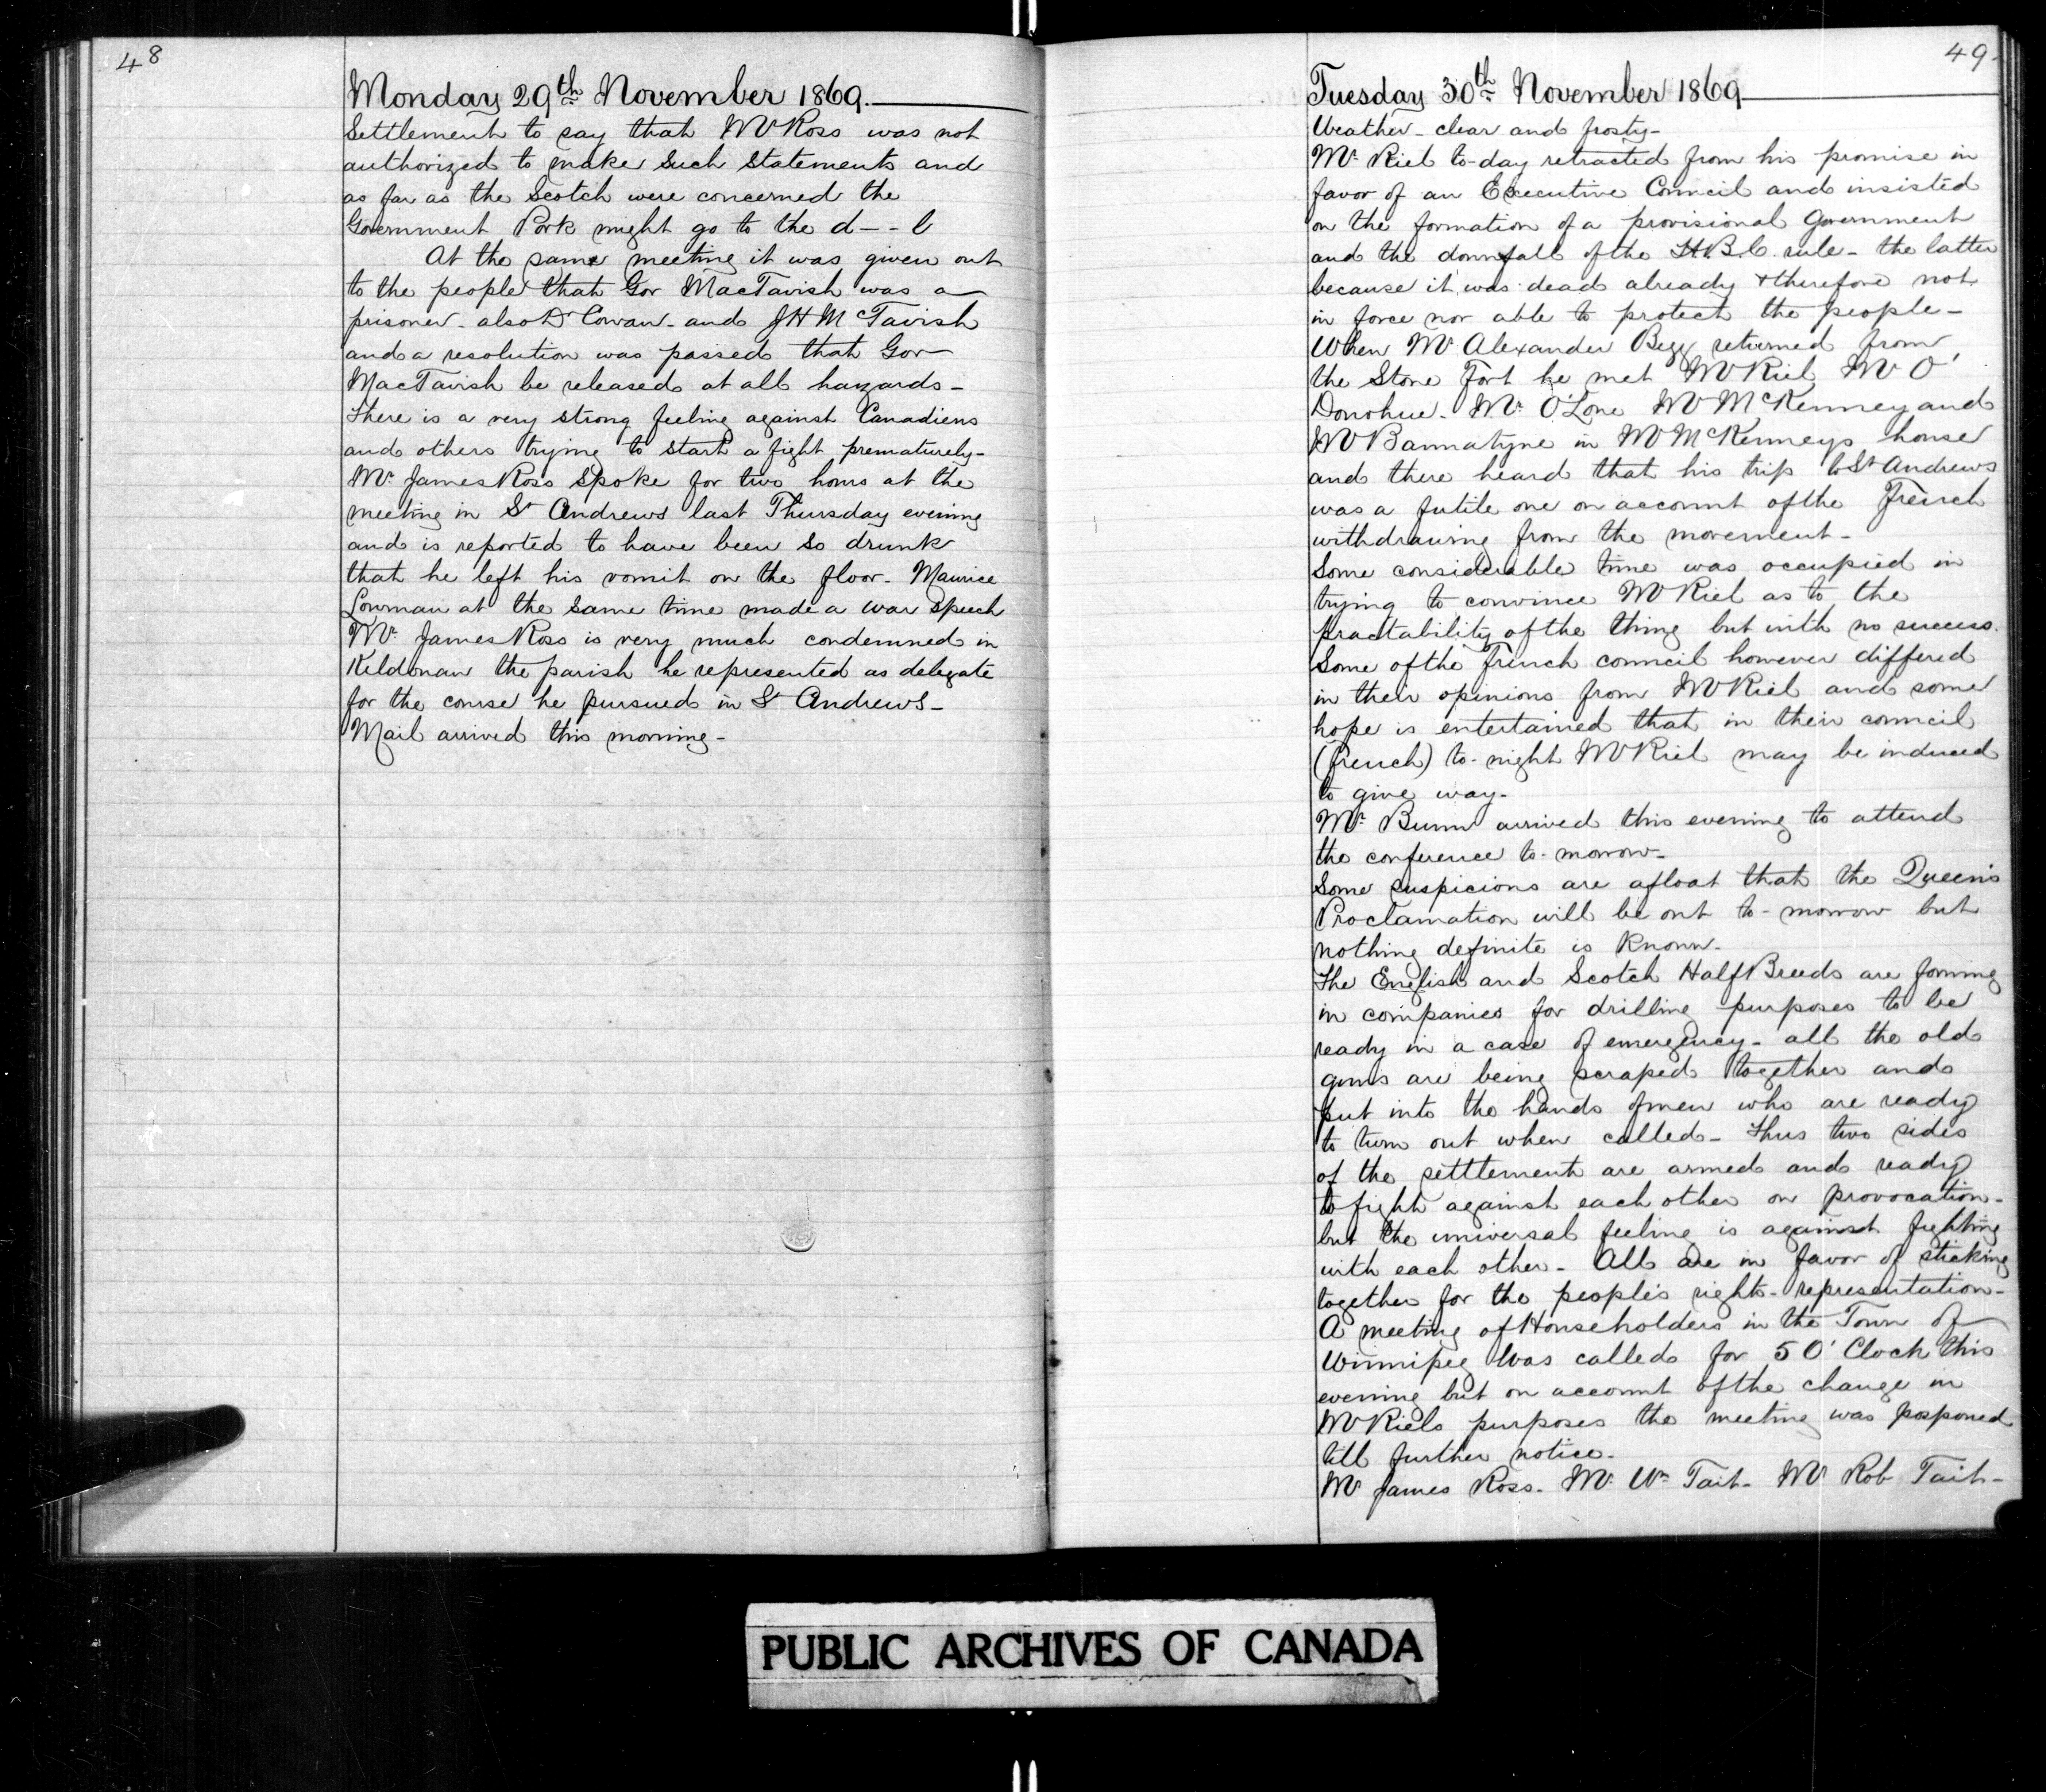 48
Monday 29th November 1869.
Settlement to say that Mr Ross was not
authorized to make such statements and
as far as the Scotch were concerned the
Government Pork might go to the d---l
At the same meeting it was given out
to the people that Gov MacTavish was a
prisoner - also Dr Cowan - and J H McTavish
and a resolution was passed that Gov
MacTavish be released at all hazards -
There is a very strong feeling against Canadiens
and others trying to start a fight prematurely -
Mr James Ross spoke for two hours at the
meeting in St Andrews last Thursday evening
and is reported to have been so drunk
that he left his vomit on the floor - Maurice
Lowman at the same time made a war speech
Mr James Ross is very much condemned in
Kildonan the parish he represented as delegate
for the course he pursued in St Andrews -
Mail arrived this morning -
49.
Tuesday 30th November 1869
Weather - clear and frosty -
Mr Riel to-day retracted from his promise in
favor of an Executive Council and insisted
on the formation of a provisional Government
and the downfall of the H.B.C. rule - the latter
because it was dead already & therefore not
in force nor able to protect the people -
When Mr Alexander Begg returned from
the Stone Fort he met Mr Riel Mr O'
Donohue - Mr O'Lone Mr McKenney and
Mr Bannatyne in Mr McKenneys house
and there heard that his trip to St Andrews
was a futile one on account of the French
withdrawing from the movement -
Some considerable time was occupied in
trying to convince Mr Riel as to the
practability of the thing but with no success.
Some of the French council however differed
in their opinions from Mr Riel and some
hope is entertained that in their council
(french) to-night Mr Riel may be induced
to give way -
Mr Bunn arrived this evening to attend
the conference to-morrow -
Some suspicions are afloat that the Queen's
Proclamation will be out to-morrow but
nothing definite is known -
The English and Scotch Half Breeds are forming
in companies for drilling purposes to be
ready in a case of emergency - all the old
guns are being scraped together and
put into the hands of men who are ready
to turn out when called - Thus two sides
of the setttlement are armed and ready
to fight against each other on provocation -
but the universal feeling is against fighting
with each other - All are in favor of sticking
together for the people's right - representation -
A meeting of Householders in the Town of
Winnipeg was called for 5 O'Clock this
evening but on account of the change in
Mr Riels purposes the meeting was posponed
till further notice -
Mr James Ross - Mr Wm Tait - Mr Rob Tait -
PUBLIC ARCHIVES OF CANADA